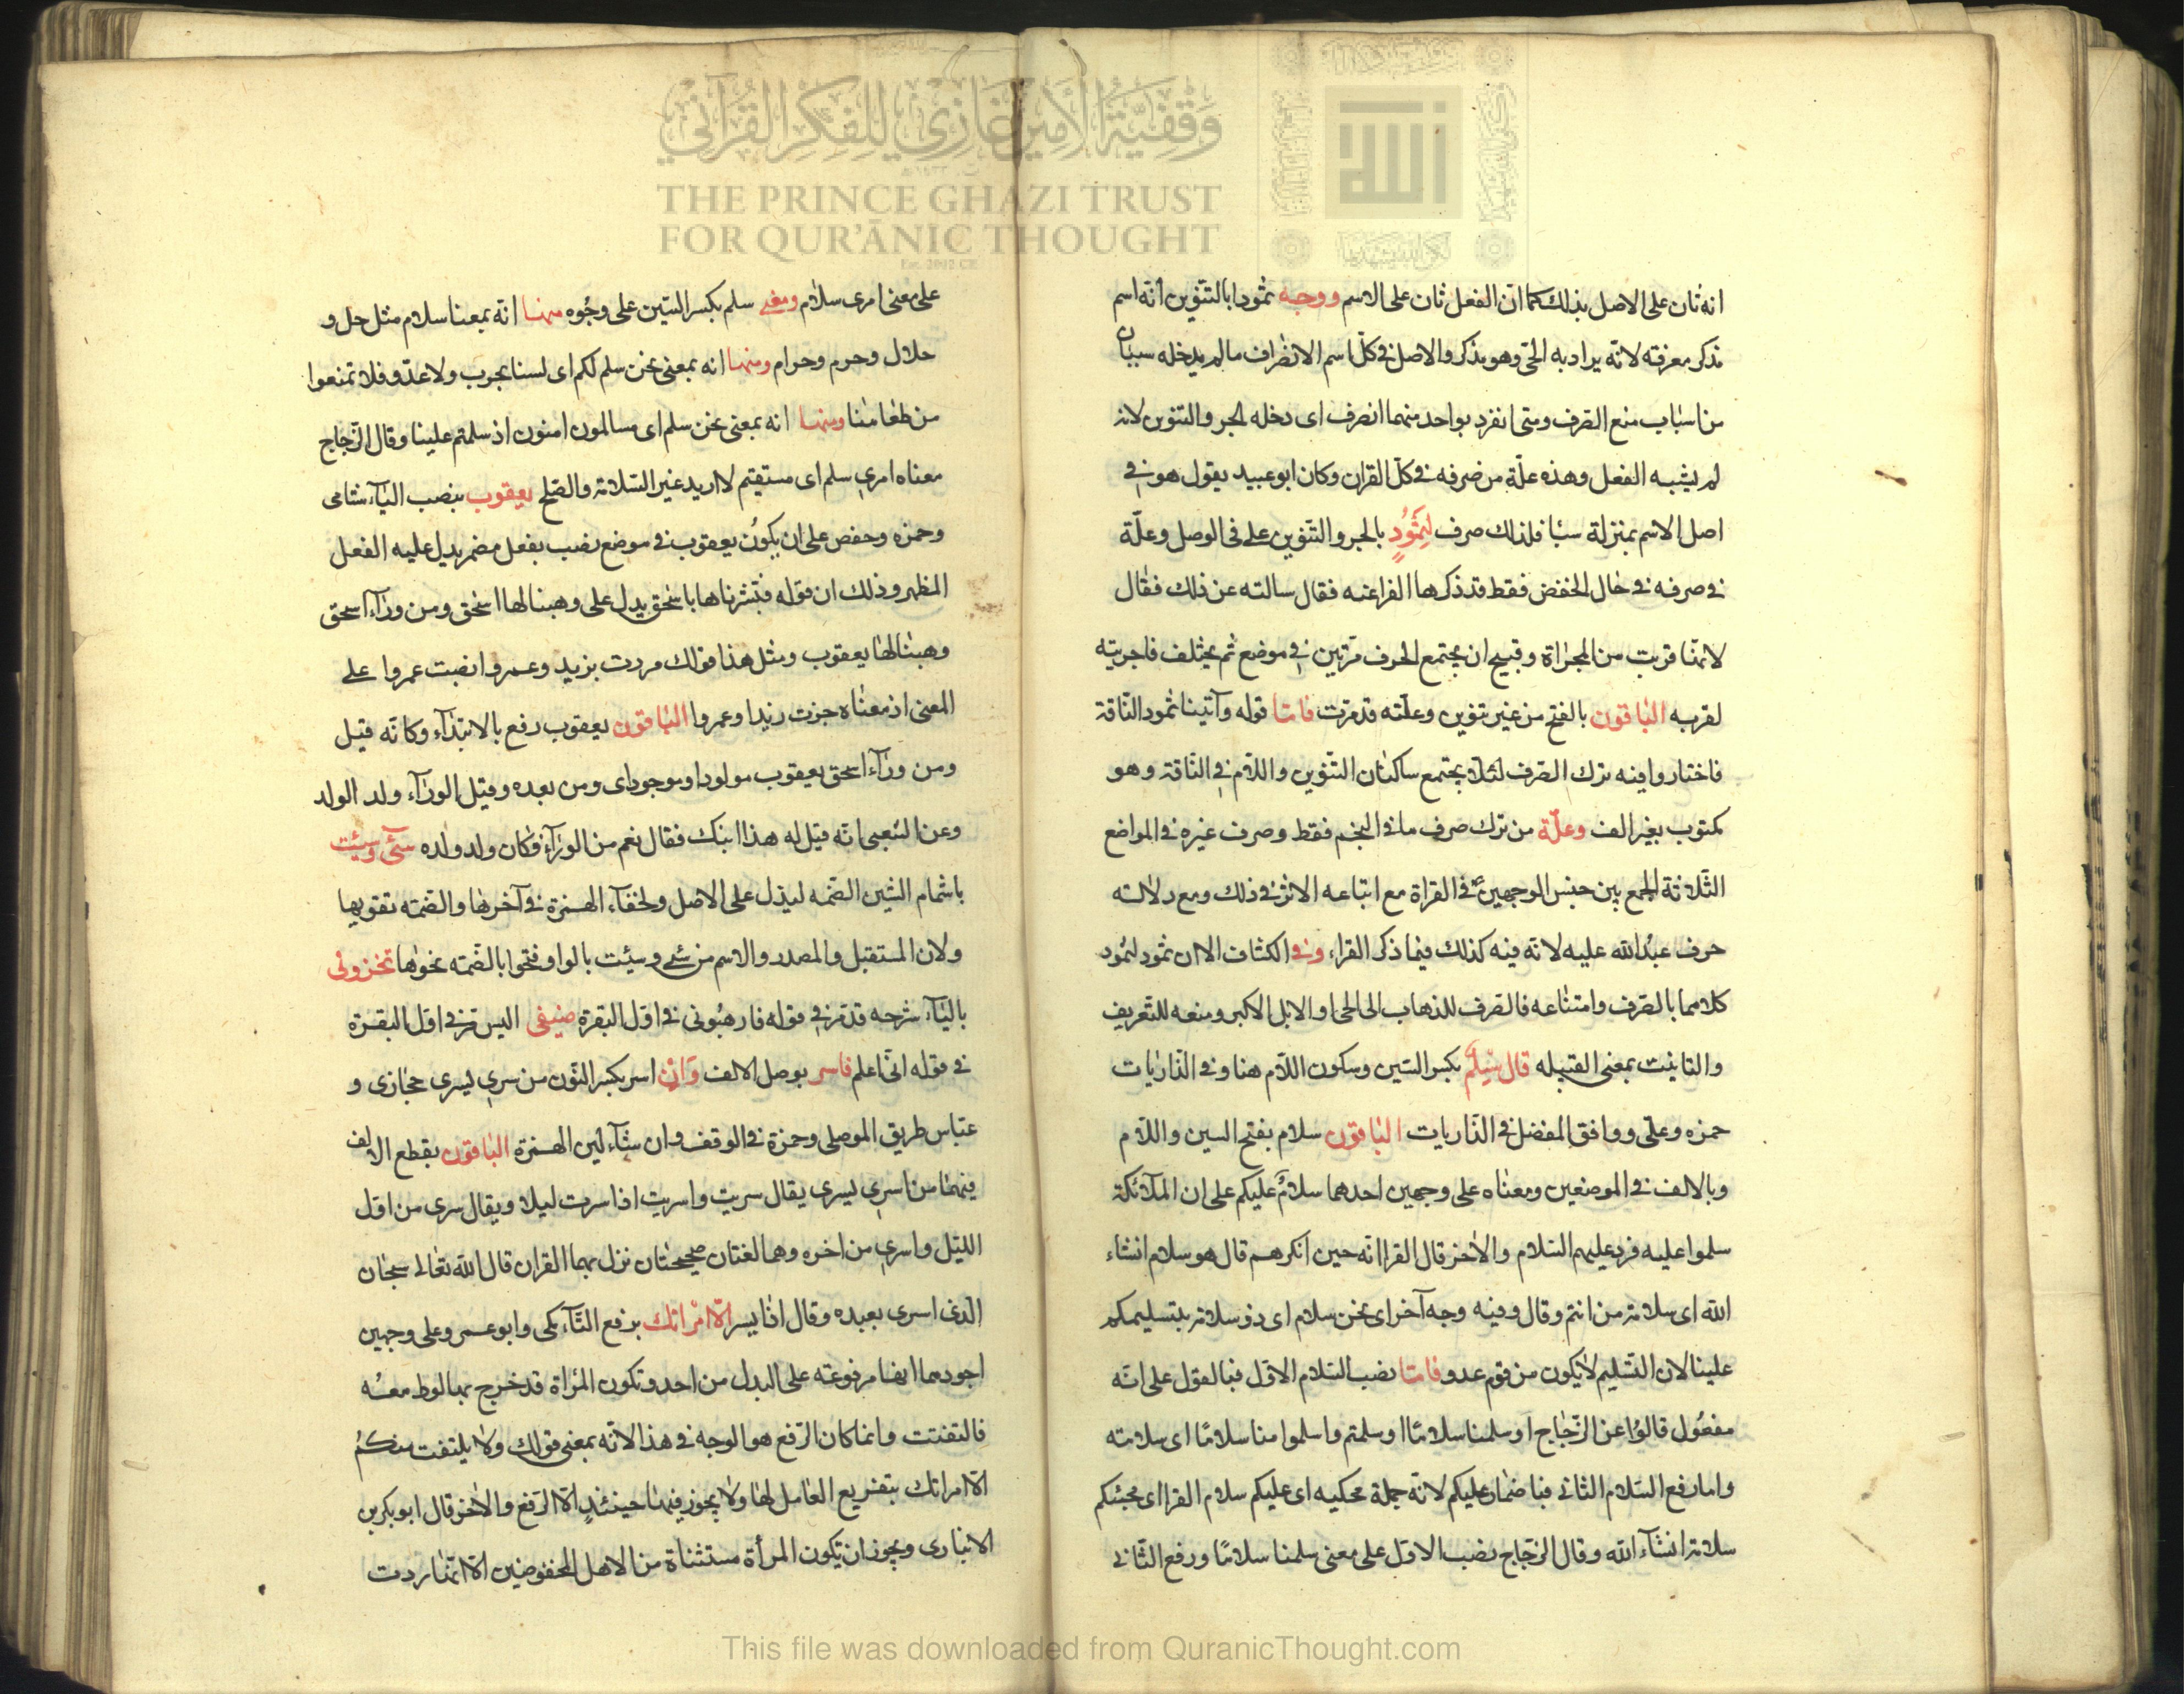 وقفية الأمير غازي للفكر القرآني
THE PRINCE GHAZI TRUST
FOR QUR'ĀNIC THOUGHT
انه ثان على الاصل بذلك كما انّ الفعل ثان على الاسم ووجه ثمودا بالتنوين انّه اسم
مذكر معرفته لانّه يراد به الحىّ وهو مذكر والاصل فى كلّ اسم الانصراف ما لم يدخله سببان
من اسباب منع الصّرف ومتى انفرد بواحد منهما انصرف اى دخله الجر والتنوين لانه
لم يشبه الفعل وهذه علّة من صرفه فى كلّ القران وكان ابو عبيد يقول هو فى
اصل الاسم بمنزلة سبا فلذلك صرف لِثَمُودٍ بالجر والتنوين على فى الوصل وعلّة
فى صرفه فى حال الخفض فقط قد ذكرها الفرا عنه فقال سالته عن ذلك فقال
لانها قربت من المجراة وقبيح ان يجتمع الحرف مرّتين فى موضع ثم يختلف فاجريته
لقربه الباقون بالفتح من غير تنوين وعلّته قد مرّت فامّا قوله وآتينا ثمود النّاقة
فاختاروا فيه ترك الصّرف لئلّا يجتمع ساكنان التنوين واللّام فى النّاقة وهو
مكتوب بغير الف وعلّة من ترك صرف ما فى النجم فقط وصرف غيره فى المواضع
الثّلاثة الجمع بين جنس الوجهين فى القراة مع اتباعه الاثر فى ذلك ومع دلالته
حرف عبد الله عليه لانّه فيه كذلك فيما ذكر القراء وفى الكشاف الا ان ثمود لثمود
كلاهما بالصّرف وامتناعه فالصّرف للذهاب الى الحى او الاب الاكبر ومنعه للتّعريف
والتانيث بمعنى القبيله قال سِلْمٌ بكسر السّين وسكون اللّام هنا وفى الذّاريات
حمزه وعلىّ ووافق المفضل فى الذّاريات الباقون سلام بفتح السين واللّام
وبالالف فى الموضعين ومعناه على وجهين احدهما سلامٌ عليكم على ان الملآئكة
سلموا عليه فرد عليهم السّلام والاخر قال الفرا انّه حين انكرهم قال هو سلام انشاء
الله اى سلامة من انتم وقال وفيه وجه آخر اى نحن سلام اى ذو سلامة بتسليمكم
علينا لان التّسليم لا يكون من قوم عدو فامّا نصب السّلام الاوّل فبالقول على انّه
مفعول قالوا عن الزّجاج او سلمنا سلامًا او سلمتم واسلموا منا سلامًا اى سلامته
واما رفع السّلام الثانى فباضمار عليكم لانّه جملة محكيه اى عليكم سلام الفرا اى
سلامة انشآء الله وقال الزجّاج نصب الاوّل على معنى سلمنا سلامًا ورفع الثّانى
على معنى امرى سلام ومعنى سلم بكسر السّين على وجُوه منها انّه بمعنا سلام مثل حل و
حلال وحرم وحرام ومنها انه بمعنى نحن سلم لكم اى لسنا بحرب ولا عدّو فلا تمنعوا
من طعامنا ومنها انه بمعنى نحن سلم اى مسالمون امنون اذ سلمتم علينا وقال الزّجاج
معناه امرى سلم اى مستقيم لا اريد غير السّلامة والصّلح يعقوب بنصب اليآء شامى
وحمزه وحفص على ان يكوُن يعقوب فى موضع نصب بفعل مضمر يدل عليه الفعل
المظهر وذلك ان قوله فبّشرناها باسحٰق يدل على وهبنا لها اسحٰق ومن ورآء اسحق
وهبنا لها يعقوب ومثل هذا قولك مررت بزيد وعمروا نصبت عمروا على
المعنى اذ معناه جزت زيدا وعمروا الباقون يعقوب رفع بالابتدآء وكانّه قيل
ومن ورآء اسحق يعقوب مولود او موجود اى ومن بعده وقيل الورآء ولد الولد
وعن الشعبى انّه قيل له هذا ابنك فقال نعم من الورآء فكان ولد ولده سئَ وسيئت
باشمام السّين الضّمه ليدل على الاصل ولخفآء الهمزة فى آخرها والضّمه تقويها
ولان المستقبل والمصدر والاسم من سئ وسيئت بالواو فنحوا بالضّمه نحوها تخزونى
باليآء شرحه قد مّر فى قوله فارهبونى فى اوّل البقرة ضيفى اليس مّر فى اوّل البقرة
فى قوله انّى اعلم فاسر بوصل الالف وَانِ اسر بكسر النّون من سرى يسرى حجازى و
عبّاس طريق الموصلى وحمزة فى الوقف وان شآء لين الهمزة الباقون بقطع الالف
فيهما من اسرى يسرى يقال سريت واسريت اذا سرت ليلا ويقال سرى من اوّل
اللّيل واسرى من اخره وهما لغتان صحيحتان نزل بهما القران قال الله تعالى سبحان
الّذى اسرى بعبده وقال اذا يسر الّا امراتك برفع التّآء مكى وابو عمرو على وجهين
اجودهما انها مرفوعة على البدل من احد وتكون المراة قد خرج بها لوط معه
فالتفتت وانما كان الرّفع هو الوجه فى هذا لانّه بمعنى قولك ولا يلتفت منكم
الّا امراتك بتفريع العامل لها ولا يجوز فيها حينئذٍ الّا الرّفع والاخر قال ابو بكر بن
الانبارى ويجوز ان تكون المرأة مستثناة من الاهل المخفوضين الّا انّها ردت
This file was downloaded from QuranicThought.com